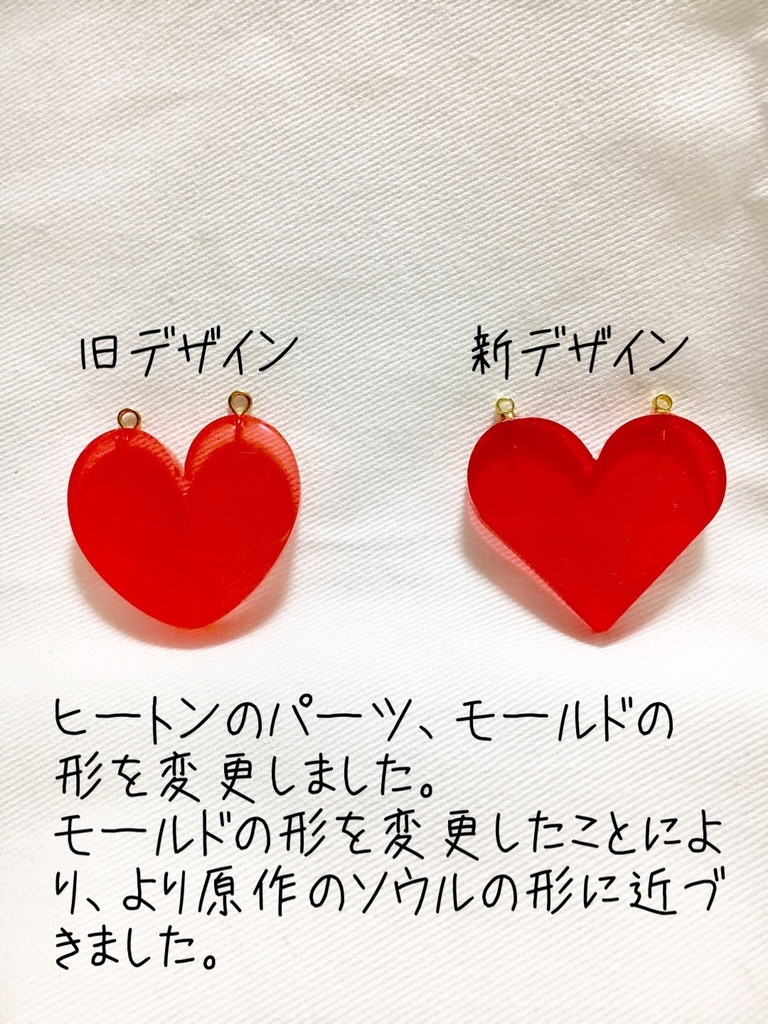 旧デザイン
新デザイン
ヒートンのパーツ、モールドの
形を変更しました。
モールドの形を変更したことによ
り、より原作のソウルの形に近づ
きました。